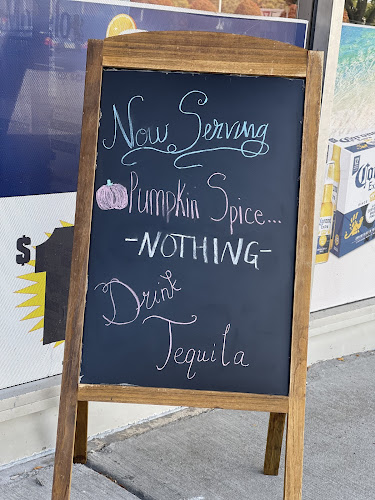 Now Serving
Pumpkin Spice...
-NOTHING-
Drink
Tequila
$1
Corona
Extra